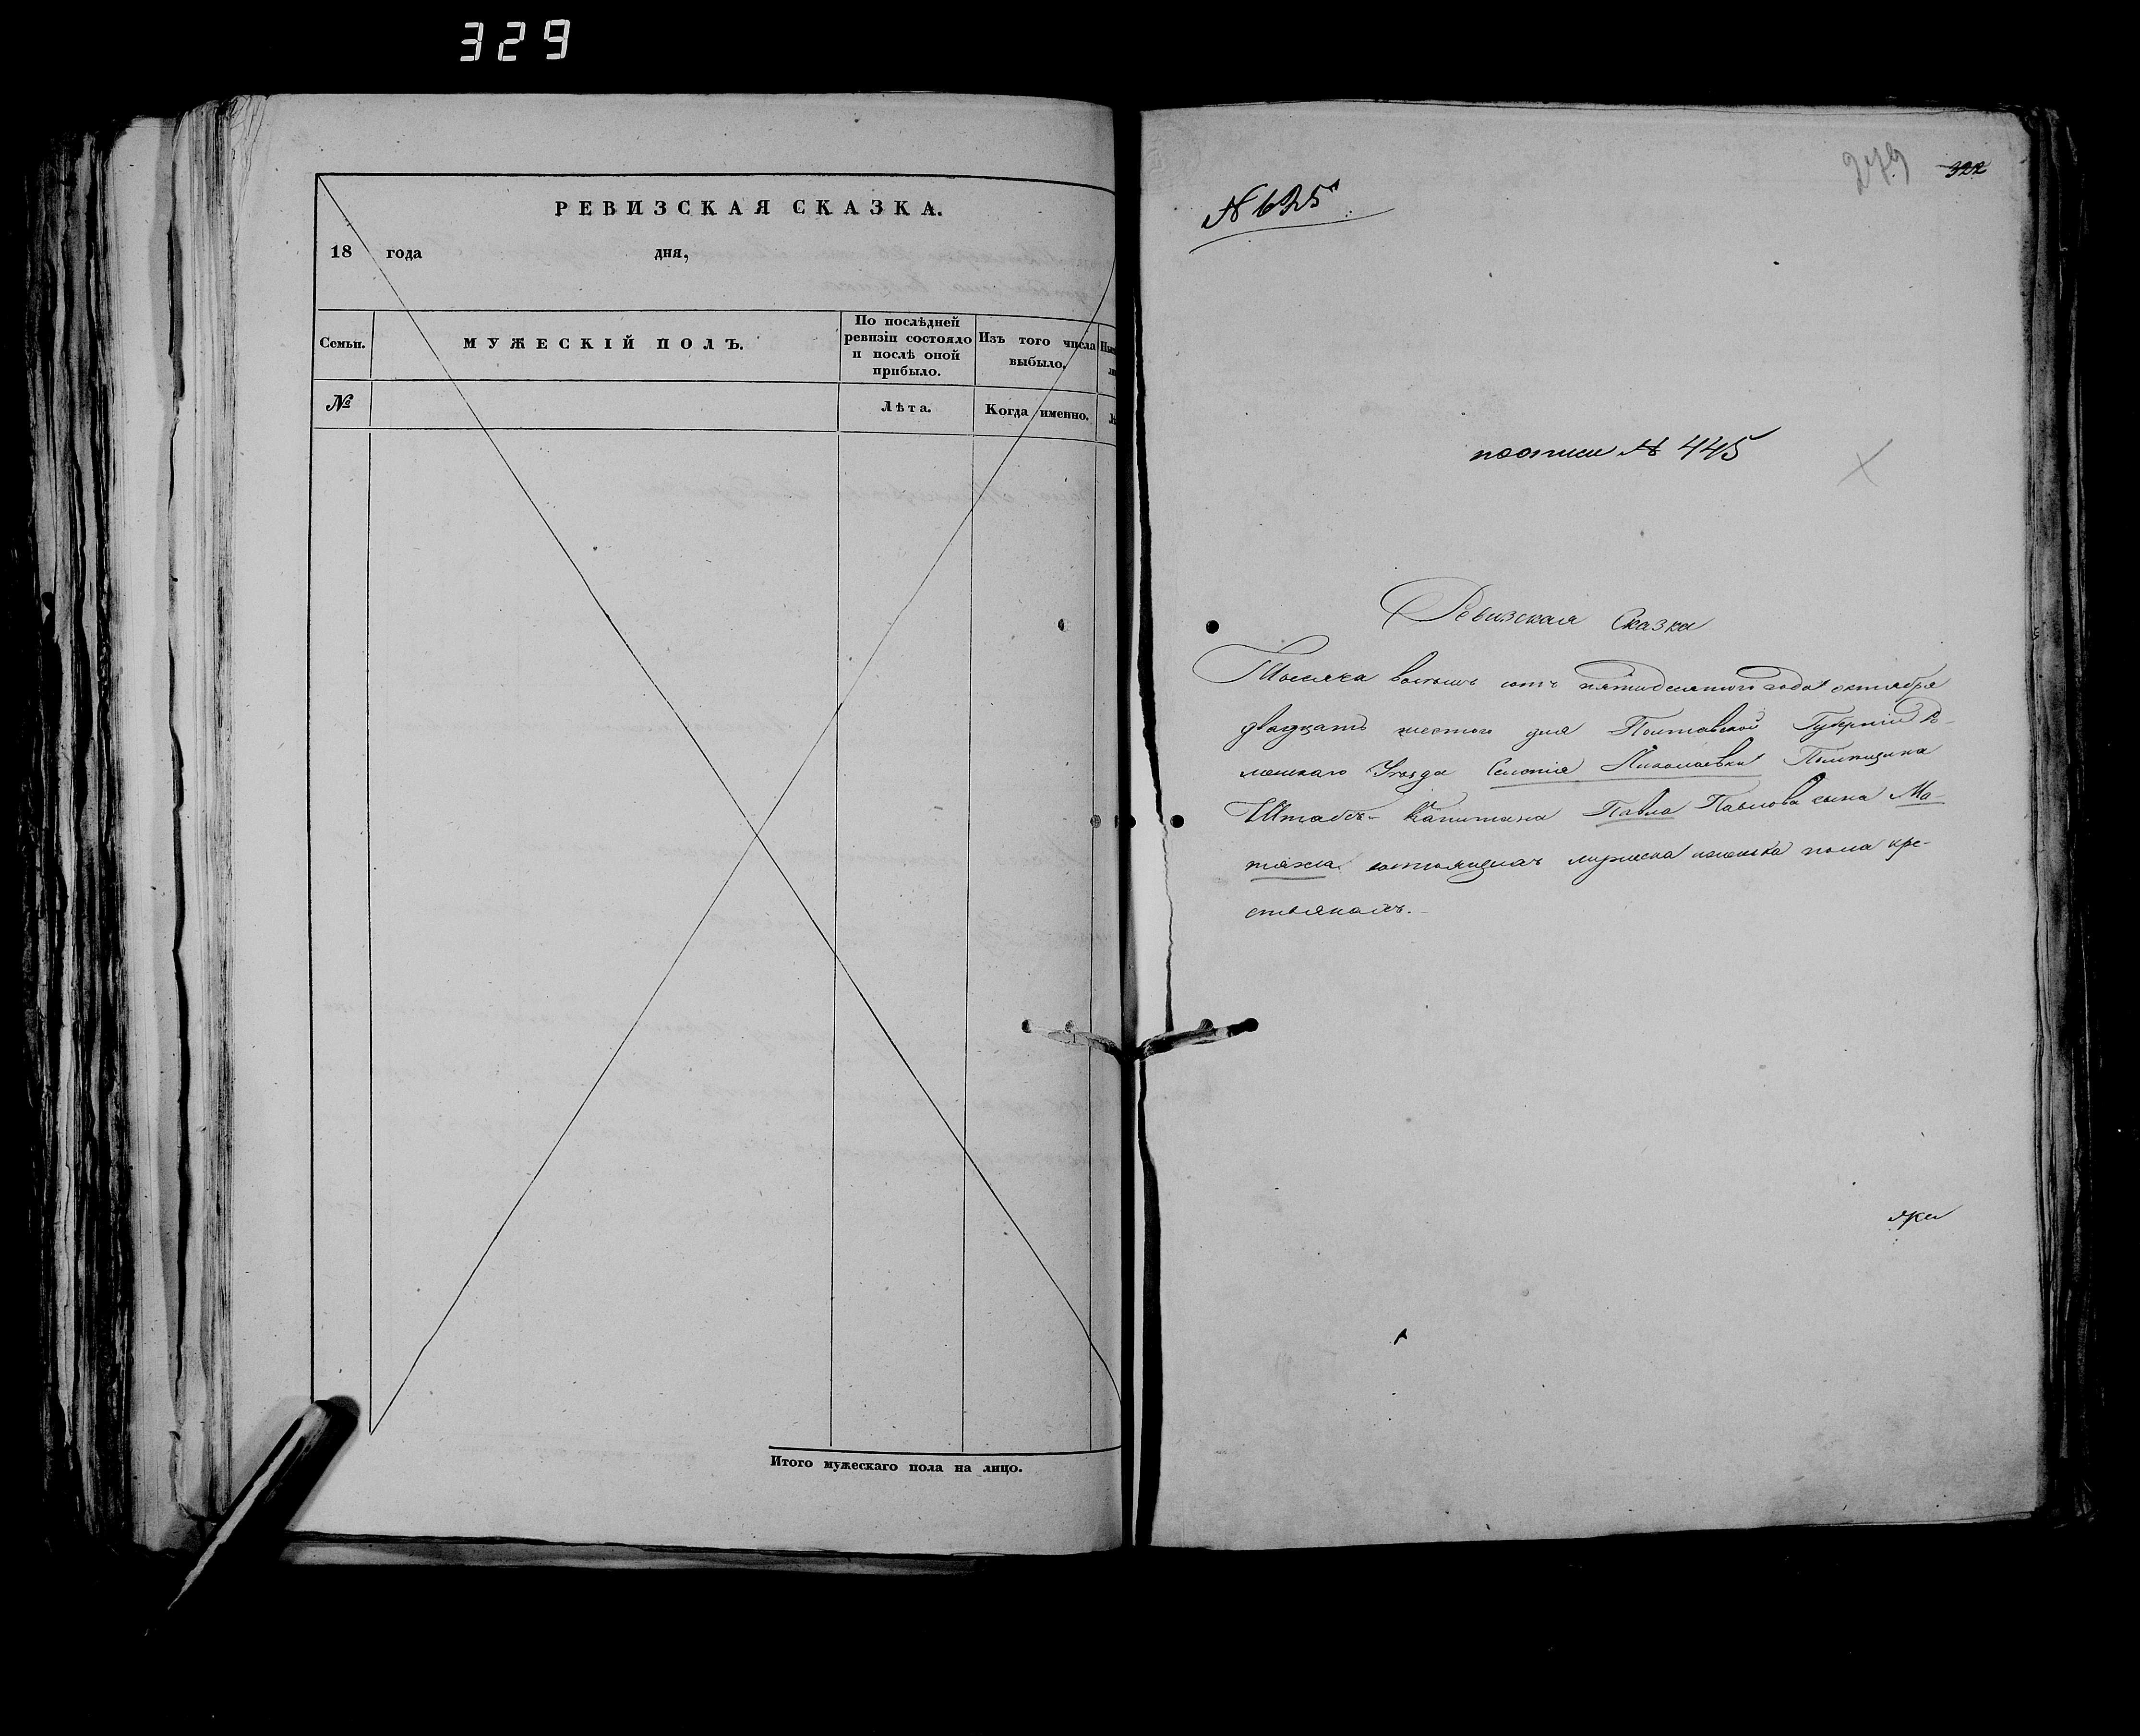 329
РЕВИЗСКАЯ СКАЗКА.
18 года дня,
Семьи.
МУЖЕСКІЙ ПОЛЪ.
По послѣдней ревизіи состояло и послѣ оной прибыло.
Изъ того числа выбыло.
№
Лѣта.
Когда именно.
Итого мужескаго пола на лицо.
279 322
№ 625
поописи № 445
Ревизская Сказка
Тысяча восемь сотъ пятидесятого года октября
двадцать шестого дня Полтавской Губерніи Ро-
менскаго Уѣзда Селенія Николаевки Помещика
Штабсъ-Капитана Павла Павлова сына Ма-
состоящимъ мужеска и женска пола кре-
стьянамъ.